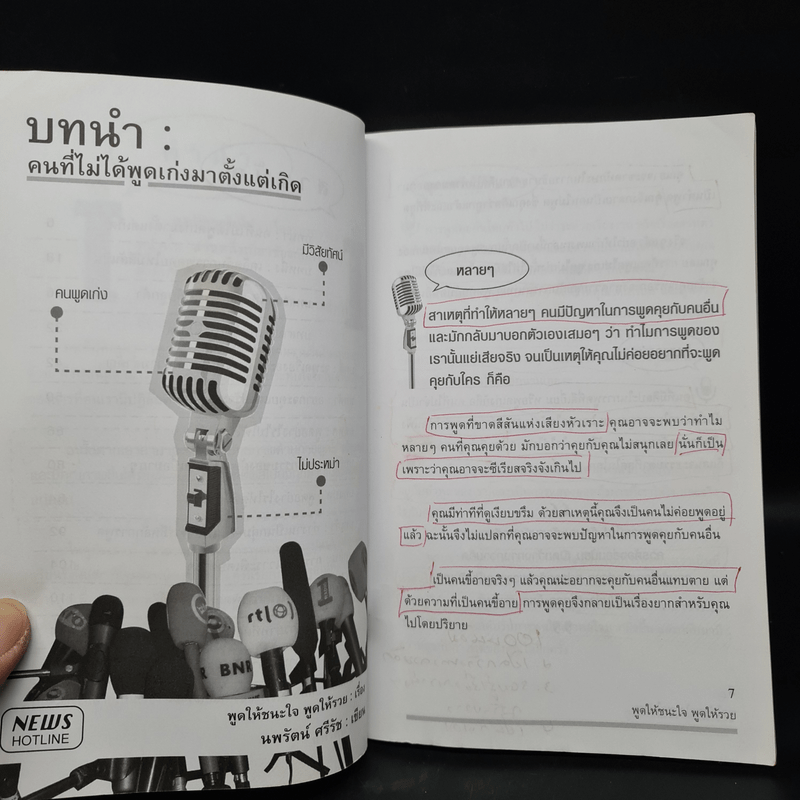 บทนำ :
คนที่ไม่ได้พูดเก่งมาตั้งแต่เกิด
มีวิสัยทัศน์
คนพูดเก่ง
ไม่ประหม่า
rtl
1
BNR
NEWS
HOTLINE
พูดให้ชนะใจ พูดให้รวย : เรื่อง
นพรัตน์ ศรีรัช : เขียน
หลายๆ
สาเหตุที่ทำให้หลายๆ คนมีปัญหาในการพูดคุยกับคนอื่น
และมักกลับมาบอกตัวเองเสมอๆ ว่า ทำไมการพูดของ
เรานั้นแย่เสียจริง จนเป็นเหตุให้คุณไม่ค่อยอยากที่จะพูด
คุยกับใคร ก็คือ
การพูดที่ขาดสีสันแห่งเสียงหัวเราะ คุณอาจจะพบว่าทำไม
หลายๆ คนที่คุณคุยด้วย มักบอกว่าคุยกับคุณไม่สนุกเลย นั่นก็เป็น
เพราะว่าคุณอาจจะซีเรียสจริงจังเกินไป
คุณมีท่าทีที่ดูเงียบขรึม ด้วยสาเหตุนี้คุณจึงเป็นคนไม่ค่อยพูดอยู่
แล้ว ฉะนั้นจึงไม่แปลกที่คุณอาจจะพบปัญหาในการพูดคุยกับคนอื่น
เป็นคนขี้อายจริงๆ แล้วคุณน่ะอยากจะคุยกับคนอื่นแทบตาย แต่
ด้วยความที่เป็นคนขี้อาย การพูดคุยจึงกลายเป็นเรื่องยากสำหรับคุณ
ไปโดยปริยาย
7
พูดให้ชนะใจ พูดให้รวย